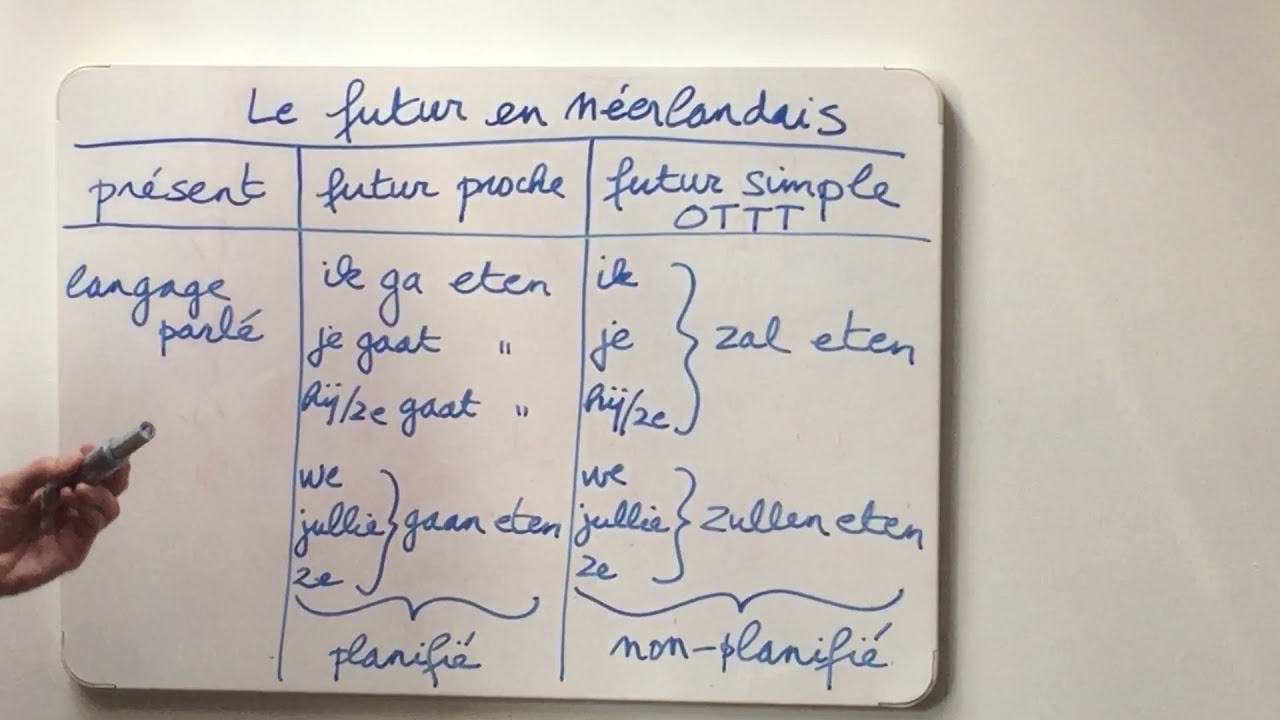 Le futur en Néerlandais
présent futur proche futur simple
OTTT
langage
parlé
ik ga eten
je gaat "
hij/ze gaat "
we
jullie gaan eten
ze
planifié
ik
je zal eten
hij/ze
we
jullie zullen eten
ze
non-planifié